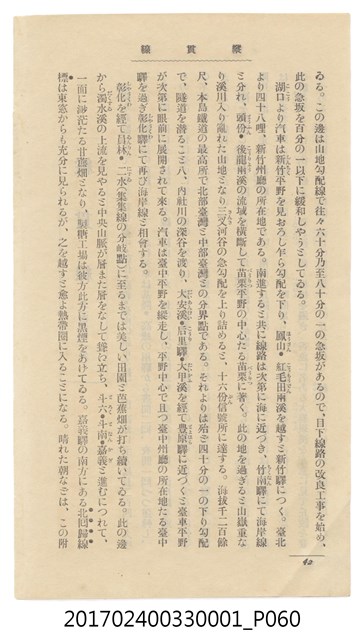 縱貫線
ゐる。この邊は山地勾配線で往々六十分乃至八十分の一の急坂があるので、目下線路の改良工事を始め、
此の急坂を百分の一以下に緩和しやうとしてゐる。
湖口より汽車は新竹平野を見おろし乍ら勾配を下り、鳳山・紅毛田兩溪を越すと新竹驛につく。臺北
より四十八哩、新竹州廳の所在地である。南進すると共に線路は次第に海に近づき、竹南驛にて海岸線
と分れ、頭份・後龍兩溪の流域を橫斷して苗栗平野の中心たる苗栗に著く。此の地を過ぎると山嶽重な
り溪川入り亂れた山地となり三叉河谷の急勾配を上り詰めると、十六份信號所に達する。海拔千二百餘
尺、本島鐵道の最高所で北部臺灣と中部臺灣との分界點である。それよりは殆ど四十分の一の下り勾配
で、隧道を潛ること八、內社川の深谷を渡り、大安溪・后里驛・大甲溪を經て豐原驛に近づくと臺中平野
が次第に眼前に展開されて來る。汽車は臺中平野を縱走し、平野中心で且つ臺中州廳の所在地たる臺中
驛を過ぎ彰化驛にて再び海岸線と相會する。
彰化を經て員林・二水(集集線の分岐點)に至るまでは美しい田園と芭蕉畑が打ち續いてゐる。此の邊
から濁水溪の上流を見やると中央山脈が層また層をなして聳え立ち、斗六・斗南・嘉義と進むにつれて、
一面に渺茫たる甘蔗畑となり、製糖工場は彼方此方に黑煙をあげてゐる。嘉義驛の南方にある北回歸線
標は車窓からも充分に見られるが、之を越すと愈よ熱帶圈に入ることになる。晴れた朝などは、この附
42
201702400330001_P060